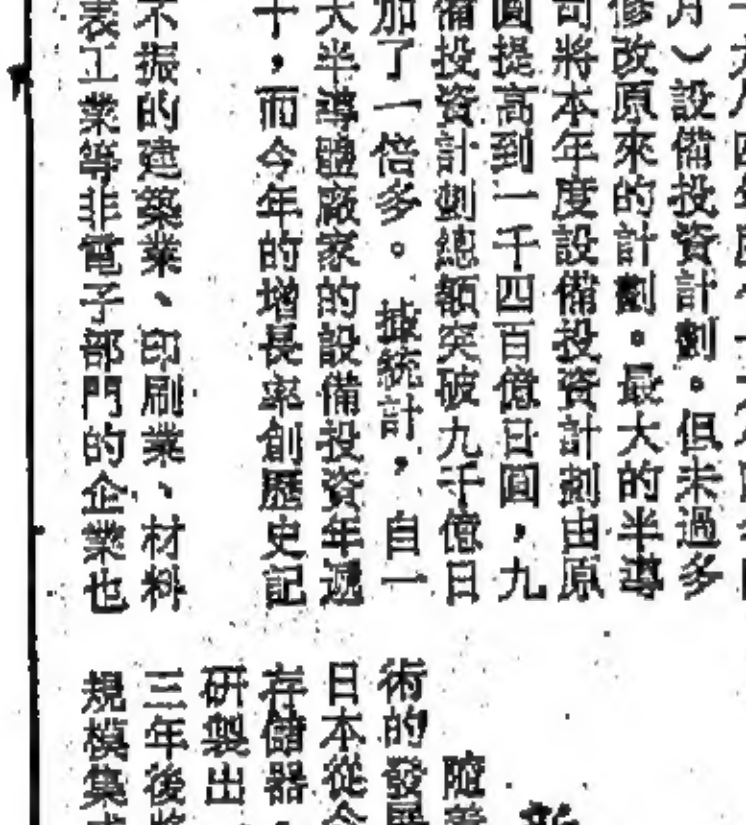 月）設備投資計劃。但未過多
修改原來的計劃。最大的半導
司將本年度設備投資計劃由原
圓提高到一千四百億日圓，九
備投資計劃總額突破九千億日
加了一倍多。據統計，自一
大半導體廠家的設備投資年遞
十，而今年的增長率創歷史記
不振的建築業、印刷業、材料
表工業等非電子部門的企業也
隨着
術的發展
日本從今
存儲器，
研製出
三年後將
規模集成